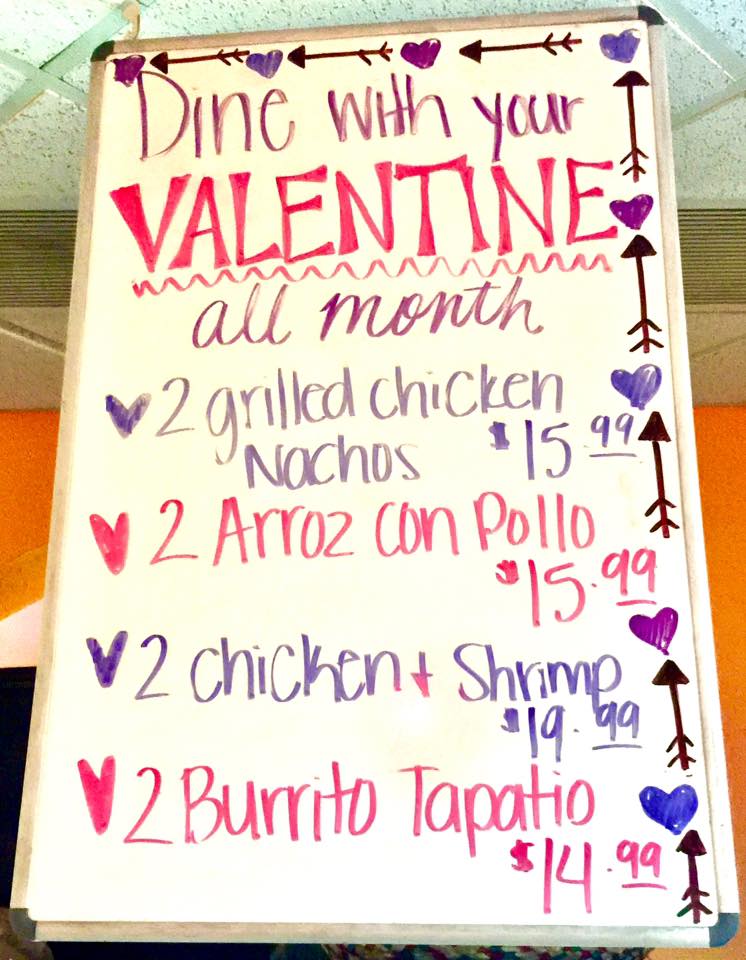 Dine with your
VALENTINE
all month
2 grilled chicken
Nachos $15.99
2 Arroz con Pollo
$15.99
2 chicken + Shrimp
$19.99
2 Burrito Tapatio
$14.99